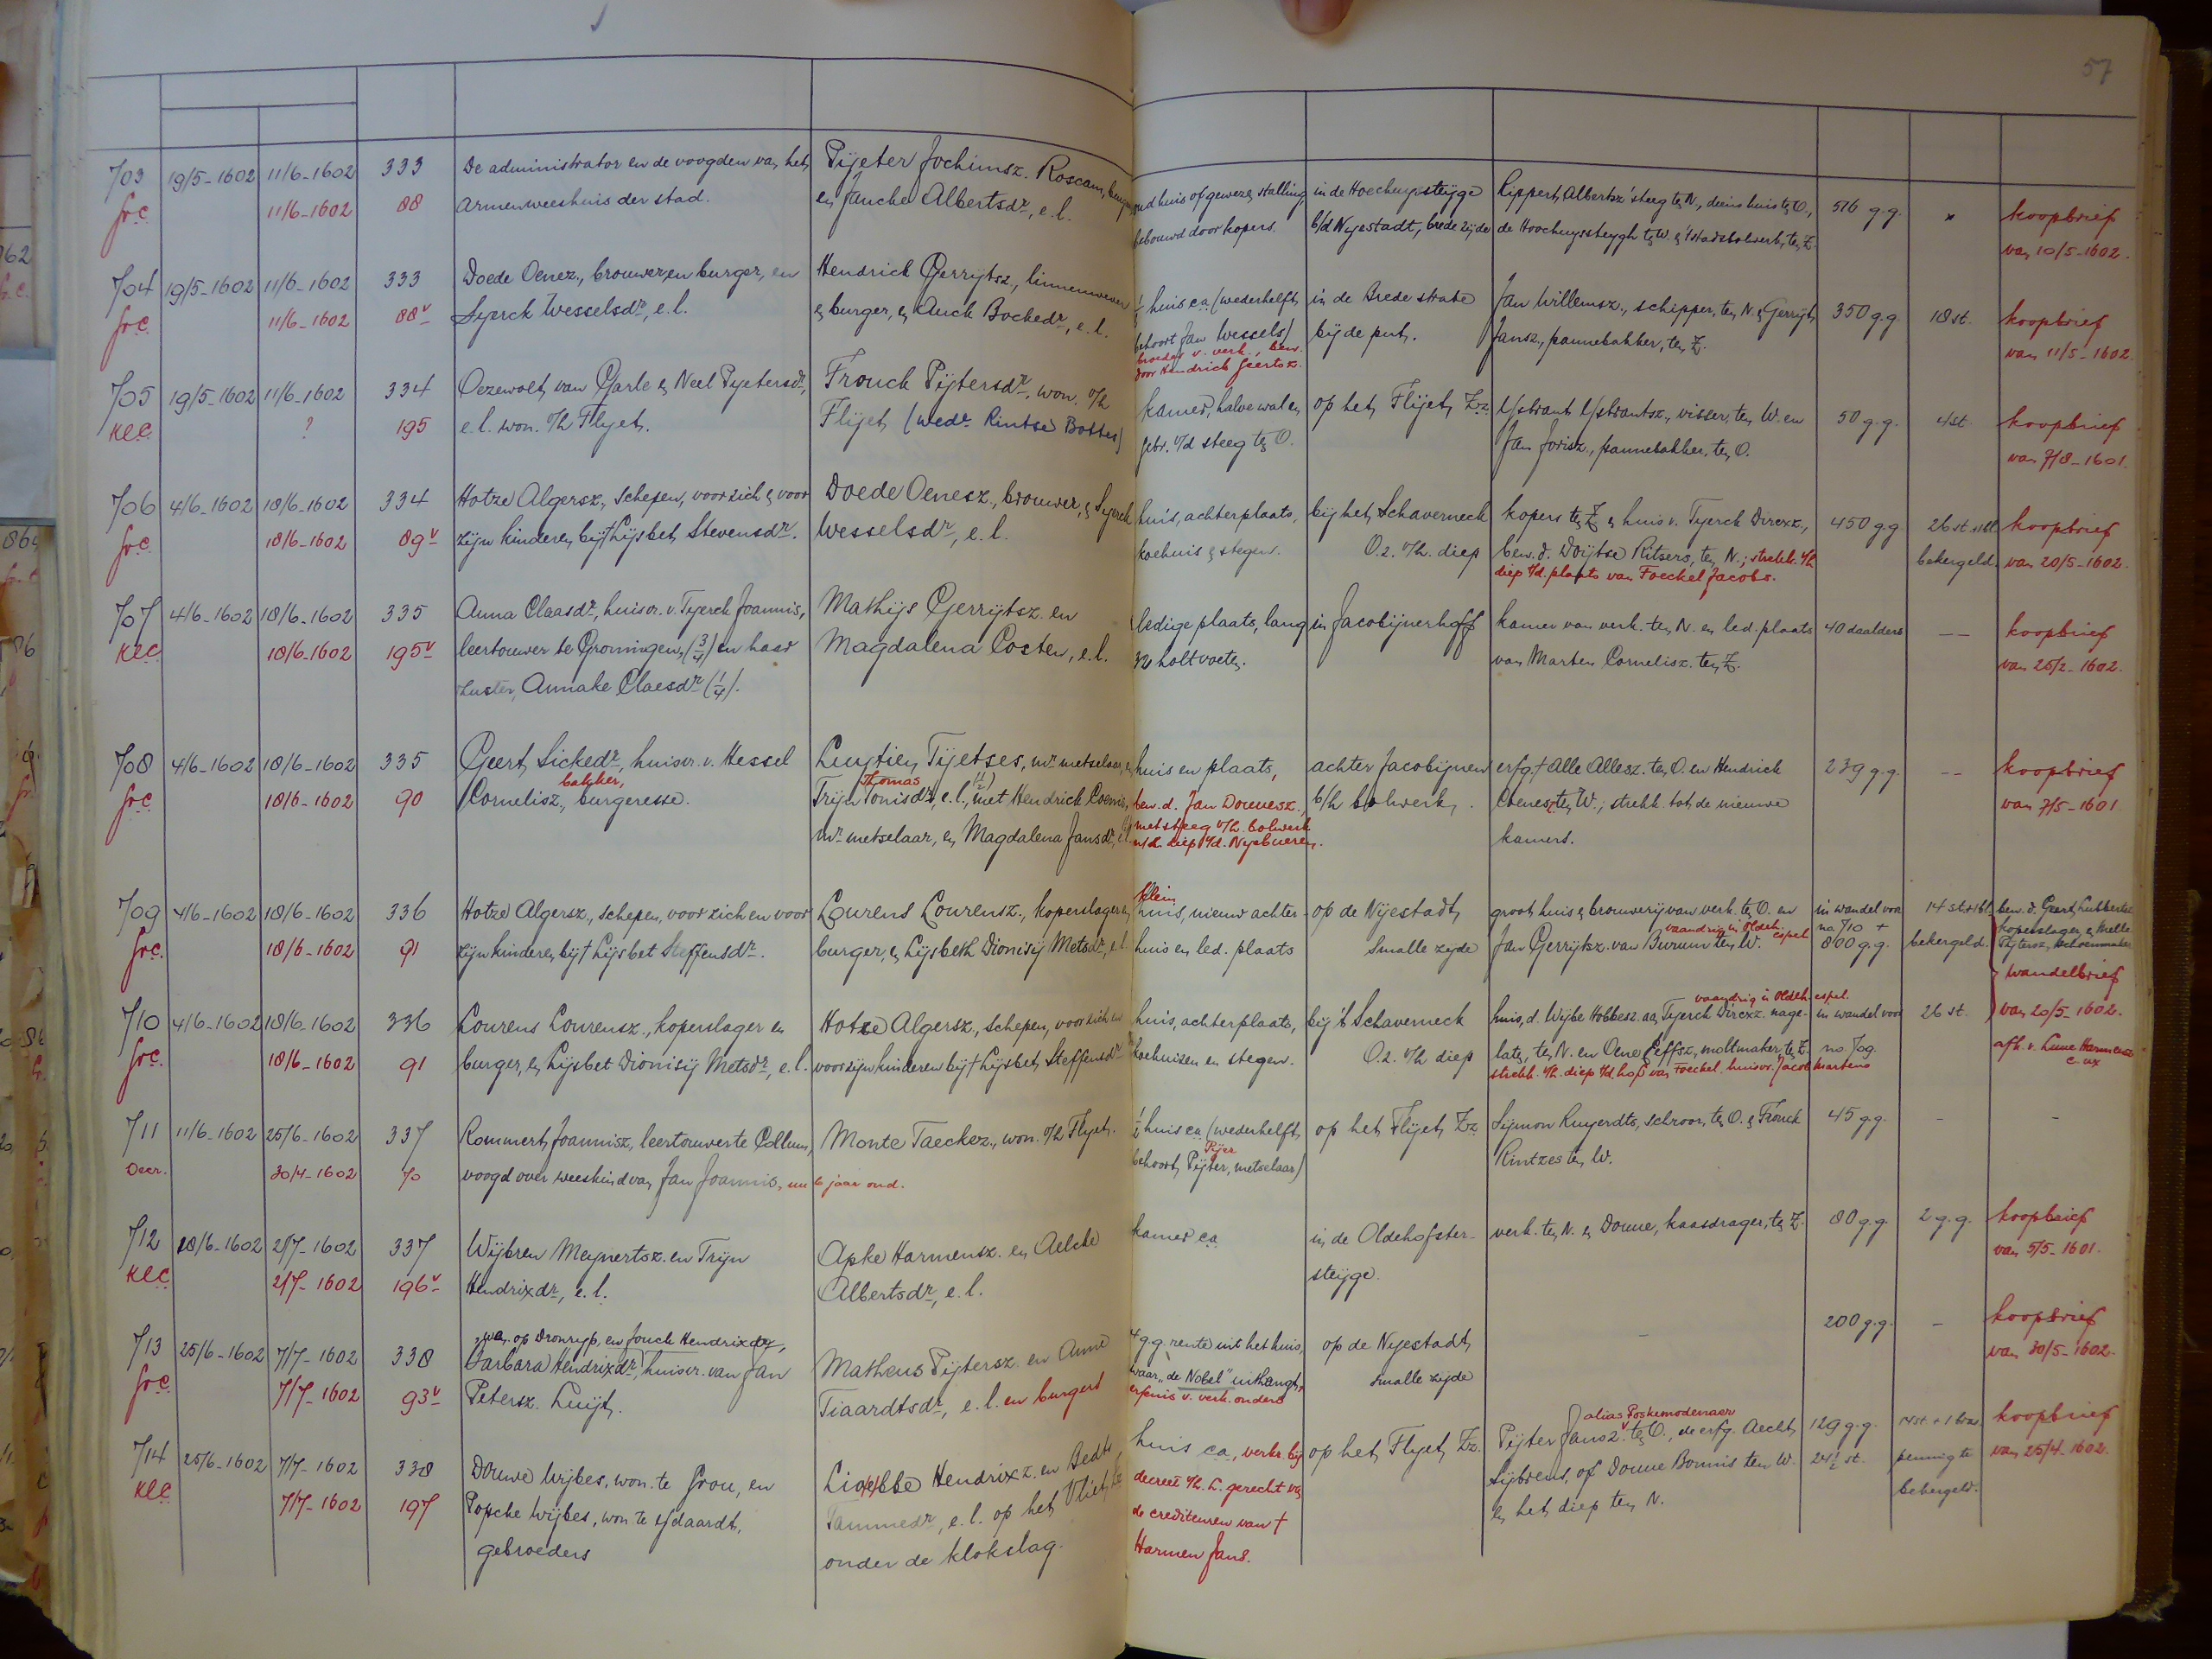 57
703 19/5-1602 11/6-1602 333 De administrator en de voogden van het Pijeter Jochimsz. Roscam, burger oud huis of geweze stalling in de Hoechuysteijge Lippert Albertsz' steeg ten N., diens huis ten O., 516 g.g. x koopbrief
Gr.C. 11/6-1602 88 Armenweeshuis der stad. en Jancke Albertsdr, e.l. bebouwd door kopers. b/d Nyestadt, brede zijde de Hoochuyssteygh ten W. en 'sstadsbolwerk ten Z. van 10/5-1602.
704 19/5-1602 11/6-1602 333 Doede Oenez., brouwer en burger, en Hendrick Gerrijtsz., linnenwever ½ huis ca (wederhelft in de Brede strate Jan Willemsz., schipper, ten N. en Gerrijt 350 g.g. 18 st. koopbrief
Gr.C. 11/6-1602 88v Syerck Wesselsdr, e.l. en burger, en Auck Bockedr, e.l. behoort Jan Wessels) bij de put. Jansz., pannebakker, ten Z. van 11/5-1602.
broeder v. verk., bew.
door Hendrick Geertsz.
705 19/5-1602 11/6-1602 334 Oezewolt van Garle en Neel Pyetersdr, Frouck Pijtersdr, won. o/h kamer, halve wal en op het Flijet Zz. IJsbrant IJsbrantsz., visser, ten W. en 50 g.g. 4 st. koopbrief
Kl.C. ? 195 e.l. won. o/h Flyet. Flijet (wedr Rintse Bottes) gebr. v/d steeg ten O. Jan Jorisz., pannebakker, ten O. van 7/8-1601.
706 4/6-1602 18/6-1602 334 Hotze Algersz., schepen, voor zich en voor Doede Oenesz., brouwer, en Syerck huis, achterplaats, bij het Schaverneck kopers ten Z. en huis v. Tyerck Dircxz., 450 g.g. 26 st. koopbrief
Gr.C. 18/6-1602 89v zijn kinderen bij † Lijsbet Stevensdr. Wesselsdr, e.l. koehuis en stegen. O.z. v/h. diep bew. d. Doijtse Ritsers, ten N.; strekk. t/h bekergeld. van 20/5-1602.
diep t/d. plaats van Foeckel Jacobs.
707 4/6-1602 18/6-1602 335 Anna Claasdr, huisvr. v. Tyerck Joannis, Mathijs Gerrijtsz. en ledige plaats, lang in Jacobijnerhoff kamer van verk. ten N. en led. plaats 40 daalders -- koopbrief
Kl.C. 18/6-1602 195v leertouwer te Groningen, (3/4) en haar Magdalena Costen, e.l. 32 holtvoeten. van Marten Cornelisz. ten Z. van 25/2-1602.
zuster, Annake Claesdr (1/4).
708 4/6-1602 18/6-1602 335 Geert Sickedr, huisvr. v. Hessel Luytien Tijetses, mr metselaar, en huis en plaats, achter Jacobijnen erfg. † Alle Allesz. ten O. en Hendrick 239 g.g. -- koopbrief
Gr.C. 18/6-1602 90 Cornelisz., bakker, burgeresse. Trijn Thomas Tonisdr, e.l. (½), met Hendrick Coenes, bew. d. Jan Douwesz., b/h bolwerk. Coenesz. ten W.; strekk. tot de nieuwe van 7/5-1601.
mr metselaar, en Magdalena Jansdr, e.l. met steeg v/h. bolwerk kamers.
n/d. diep t/d. Nyebueren.
709 4/6-1602 18/6-1602 336 Hotze Algersz., schepen, voor zich en voor Lourens Lourensz., koperslager en klein huis, nieuw achter- op de Nijestadt groot huis en brouwerij van verk. ten O. en in wandel voor 14 st. bew. d. Geert Lubberts
Gr.C. 18/6-1602 91 zijn kinderen bij † Lijsbet Steffensdr. burger, en Lijsbeth Dionisij Metsdr, e.l. huis en led. plaats Smalle zyde Jan Gerrijtsz. van Burum vaandrig in Oldeh. espel ten W. no 710 + 800 g.g. bekergeld. koperslager, en Melle Pijtersz, schoenmaker
wandelbrief
710 4/6-1602 18/6-1602 336 Lourens Lourensz., koperslager en Hotze Algersz., schepen, voor zich en huis, achterplaats, bij 't Schaverneck huis, d. Wijbe Hobbesz. aan Tyerck Dircxz. vaandrig in Oldeh. espel. nage- in wandel voor 26 st. van 20/5-1602.
Gr.C. 18/6-1602 91 burger, en Lijsbet Dionisij Metsdr, e.l. voor zijn kinderen bij † Lijsbet Steffensdr koehuizen en stegen. O.z. v/h diep laten, ten N. en Oene Eeffsz., moltmaker, ten Z. no. 709. afk. v. Luue Harmensz c. ux
strekk. t/h. diep t/d. hof van Foeckel. huisvr. Jacob Martens
711 11/6-1602 25/6-1602 337 Rommert Joannisz., leertouwer te Collum, Monte Taeckez., won. o/h Flyet. ½ huis ca (wederhelft op het Flijet Zz. Sijmon Ruyerdts, schroor, ten O. en Frouck 45 g.g. - -
Decr. 30/4-1602 70 voogd over weeskind van Jan Joannis, nu 6 jaar oud. behoort Pijter, Pijer metselaar) Rintzes ten W.
712 18/6-1602 2/7-1602 337 Wijbren Meynertsz. en Trijn Apke Harmensz. en Aelcke kamer ca in de Oldehofster- verk. ten N. en Douue, kaasdrager, ten Z. 80 g.g. 2 g.g. koopbrief
Kl.C. 2/7-1602 196v Hendrixdr, e.l. Albertsdr, e.l. steijge. van 5/5-1601.
713 25/6-1602 7/7-1602 338 Barbara Hendrixdr, won. op Dronryp, en Jouck Hendrixdr, huisvr. van Jan Matheus Pijtersz. en Anne 4 g.g. rente uit het huis, op de Nyestadt - 200 g.g. - koopbrief
Gr.C. 7/7-1602 93v Petersz. Luijt. Tiaardtsdr, e.l. en burgers waar „de Nobel" uithangt, smalle zijde van 30/5-1602.
erfenis v. verk. ouders
714 25/6-1602 7/7-1602 338 Douwe Wijbes, won. te Grou, en Liobbe Hendrixz. en Bedt huis ca, verkr. bij op het Flyet Zz. Pijter Jansz. alias Poskemodenaer ten O., de erfg. Aecht 129 g.g. 14 st. + 1 koopbrief
Kl.C. 7/7-1602 197 Popcke Wijbes, won. te Ydaardt, Tammedr, e.l. op het Vliet decreet v/h. L. gerecht van Sijbrens, of Douue Bonnis ten W. 24½ st. penning te van 25/4-1602.
gebroeders onder de klokslag. de crediteuren van † en het diep ten N. bekergeld.
Harmen Jans.